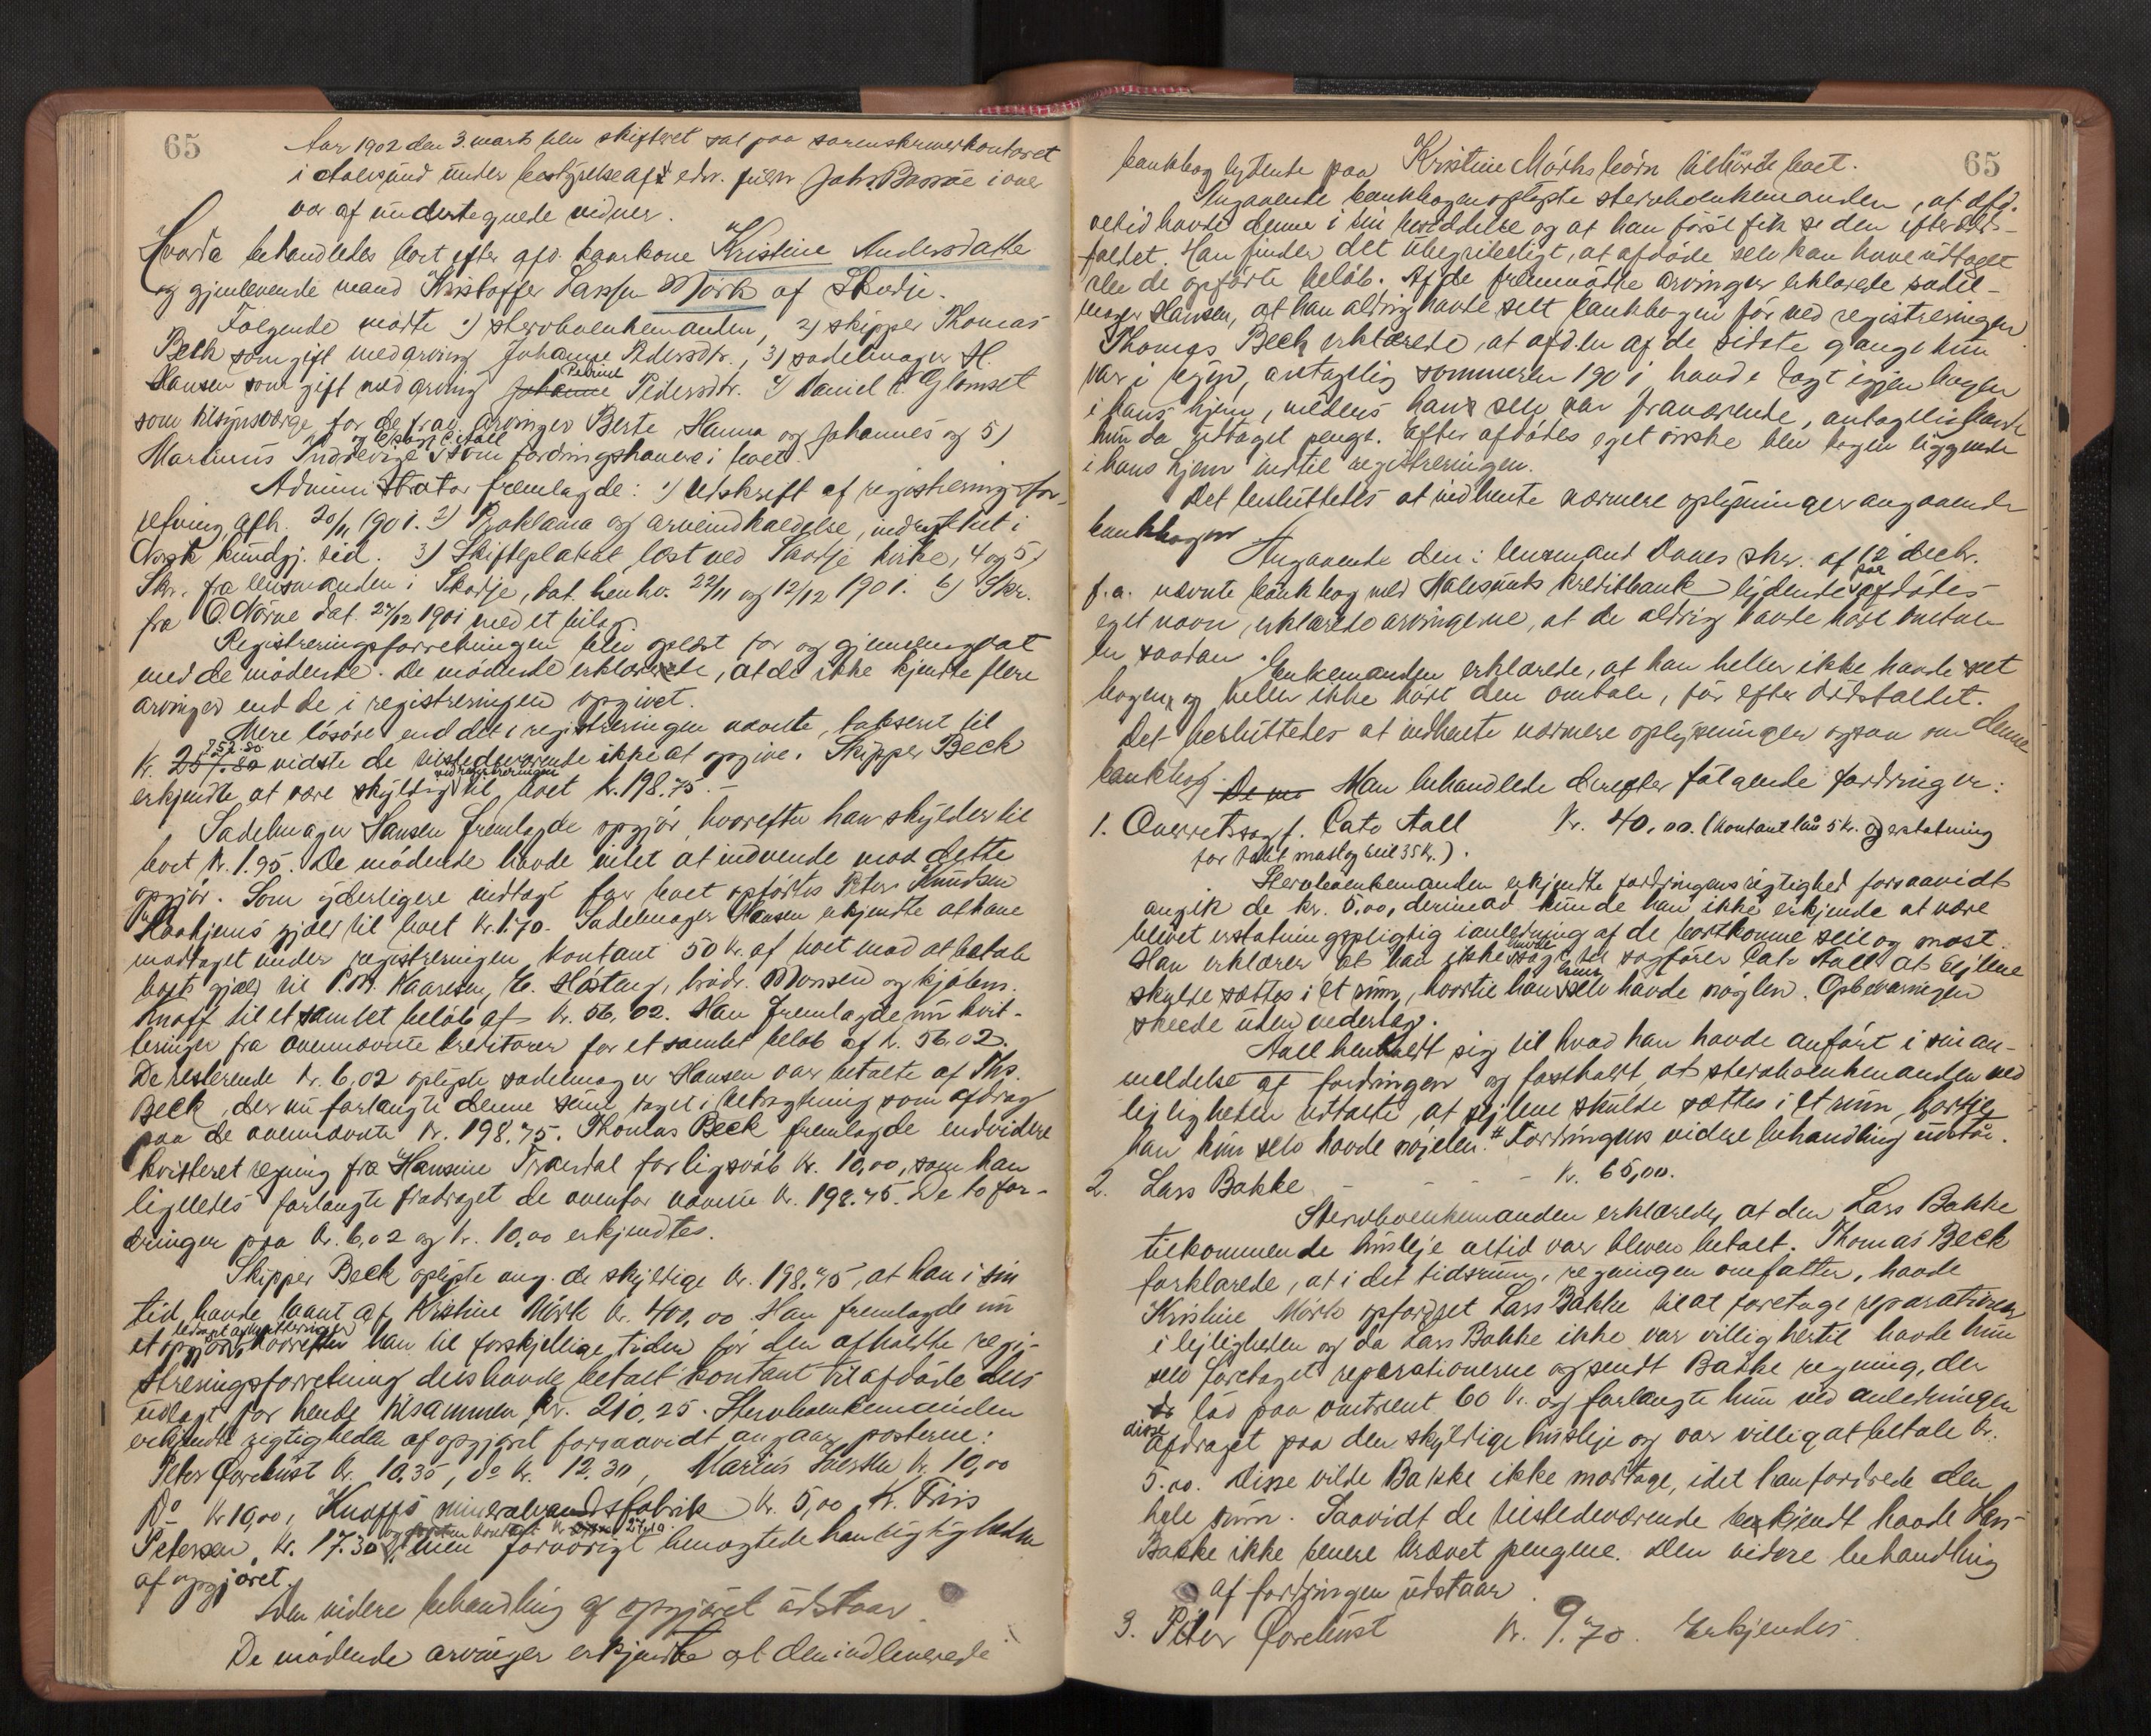 65
Aar 1902 den 3. marts blev skifteret sat paa sorenskriverkontoret
i Aalesund under bestyrelse af edsv. fuldm. John Bassøe i over
vær af undertegnede vidner.
Hvorda behandledes boet efter afd. kaarkone Kristine Andersdatter
og gjenlevende mand Kristoffer Larssen Mørk af Skodje.
Følgende mødte 1) stervboenkemanden, 2) skipper Thomas
Beck som gift med arving Johanne Pedersdtr., 3) sadelmager H.
Hansen som gift med arving Johanne Petrine Pedersdtr. 4) Daniel E. Glomset
som tilsynsværge for de frav. arvinger Berte Hanna og Johannes og 5)
Martinus Indrevige og O.sagf. C. Aall som fordringshavere i boet.
Administrator fremlagde: 1) Udskrift af registreringsfor-
retning afh. 20/11 1901. 2) Proklama og arveindkaldelse, indrykket i
Norsk kundgj. tid. 3) Skifteplakat læst ved Skodje kirke, 4 og 5)
Skr. fra lensmanden i Skodje, dat. henhv. 22/11 og 12/12 1901. 6) Skr.
fra O. Nörve dat. 27/12 1901 med et bilag.
Registreringsforretningen blev oplæst for og gjennemgaat
med de mødende. De mødende erklærede, at de ikke kjendte flere
arvinger end de i registreringen opgivet.
Mere løsøre end det i registreringen nævnte, takseret til
kr. 257.80 252.80 vidste de tilstedeværende ikke at opgive. Skipper Beck
erkjendte at være skyldig ved registreringen til boet kr. 198.75.-
Sadelmager Hansen fremlagde opgjør, hvorefter han skylder til
boet kr. 1.95. De mødende havde intet at indvende mod dette
opgjør. Som yderligere indtægt for boet opførtes Peter Knudsen
Haahjems gjæld til boet kr. 1.70. Sadelmager Hansen erkjendte at have
modtaget under registreringen kontant 50 kr. af boet mod at betale
boets gjæld til P.M. Kaaresen, E. Høstens, brødr. Monsen og kjøbm.
Knoff til et samlet beløb af kr. 56.02. Han fremlagde nu kvit-
teringer fra ovennævnte kreditorer for et samlet beløb af k. 56.02.
De resterende kr. 6,02 oplyste sadelmager Hansen var betalte af Ths.
Beck, der nu forlangte denne sum taget i betragtning som afdrag
paa de ovennævnte kr. 198.75. Thomas Beck fremlagde endvidere
kvitteret regning fra Hansine Trandal for ligsvøb kr. 10,00, som han
ligeledes forlangte fradraget de ovenfor nævnte kr. 198.75. De to for-
dringer paa kr. 6,02 og kr. 10,00 erkjendtes.
Skipper Beck oplyste ang. de skyldige kr. 198.75, at han i sin
tid havde laant af Kristine Mörk kr. 400,00 Han fremlagde nu
et opgjør ledsaget af kvitteringer hvorefter han til forskjellige tider før den afholdte regi-
streringsforretning dels havde betalt kontant til afdøde dels
udlagt for hende tilsammen kr. 210,25. Stervboenkemanden
erkjendte rigtigheden af opgjøret forsaavidt angaar posterne:
Peter Qvelust kr. 10.35, do kr. 12.30, Marius kr. 10,00
Do kr 10,00, Knoffs mineralvandsfabrik kr. 5,00, K. Friis
Petersen kr. 17.30 men forøvrigt benægtede han rigtigheden
af opgjøret.
Den videre behandling af opgjøret udstaar.
De mødende arvinger erkjendte at den indleverede
65
bankbog lydende paa Kristine Mörks börn tilhørte boet.
Angaaende bankbogen oplyste stervboenkemanden, at afd.
altid havde denne i sin besiddelse og at han først fik se den efter döds-
faldet. Han finder det ubegribeligt, at afdøde selv kan have udtaget
alle de opførte beløb. Af de fremmødte arvinger erklærede sadel-
mager Hansen, at han aldrig havde sett bankbogen før ved registreringen.
Thomas Beck erklærede, at afd. en af de sidste gange hun
var i byen, antagelig sommeren 1901, havde lagt igjen bogen
i hans hjem, medens han selv var fraværende, antagelig havde
hun da udtaget penge. Efter afdødes eget ønske blev bogen liggende
i hans hjem indtil registreringen.
Det besluttedes at indhente nærmere oplysninger angaaende
bankbogen
Angaaende den i lensmand Daaes skr. af 12 decbr.
f.a. nævnte bankbog med Aalesunds kreditbank lydende paa afdødes
eget navn, erklærede arvingerne, at de aldrig havde hørt omtale
en saadan. Enkemanden erklærede, at han heller ikke havde seet
bogen, og heller ikke hørt den omtale, før efter dødsfaldet.
Det besluttedes at indhente nærmere oplysninger ogsaa om denne
bankbog. Man behandlede derefter følgende fordringer:
1. Overretssagf. Cato Aall kr. 40,00. (kontant laan 5 kr. og erstatning
for tabt mast og seil 35 kr.).
Stervboenkemanden erkjendte fordringens rigtighed forsaavidt
angik de kr. 5,00, derimod kunde han ikke erkjende at være
blevet erstatningspligtig i anledning af de bortkomne seil og mast.
Han erklærer at han ikke havde sagt til sagfører Cato Aall at sejlene
skulde sættes i et rum, hvortil han kun selv havde nøglen. Opbevaringen
skeede uden vederlag.
Aall henholdt sig til hvad han havde anført i sin an-
meldelse af fordringen og fastholdt, at stervboenkemanden ved
leiligheden udtalte, at sejlene skulde sættes i et rum, hvortil
han kun selv havde nøjelen. # Fordringens videre behandling udstår.
2. Lars Bakke - - - - - kr. 65,00.
Stervboenkemanden erklærede, at den Lars Bakke
tilkommende husleje altid var bleven betalt. Thomas Beck
forklarede, at i det tidsrum, regningen omfatter, havde
Kristine Mörk opfordret Lars Bakke til at foretage reparationer
i lejligheden og da Lars Bakke ikke var villig hertil havde hun
selv foretaget reparationerne og sendt Bakke regning, der
lød paa omtrent 60 kr. og forlangte hun ved anledningen
disse afdraget paa den skyldige husleje og var villig at betale kr.
5.00. Disse vilde Bakke ikke modtage, idet han fordrede den
hele sum. Saavidt de tilstedeværende bekjendt havde Lars
Bakke ikke senere krævet pengene. Den videre behandling
af fordringen udstaar.
3. Peter Qvelust kr. 9.70. Erkjendes.